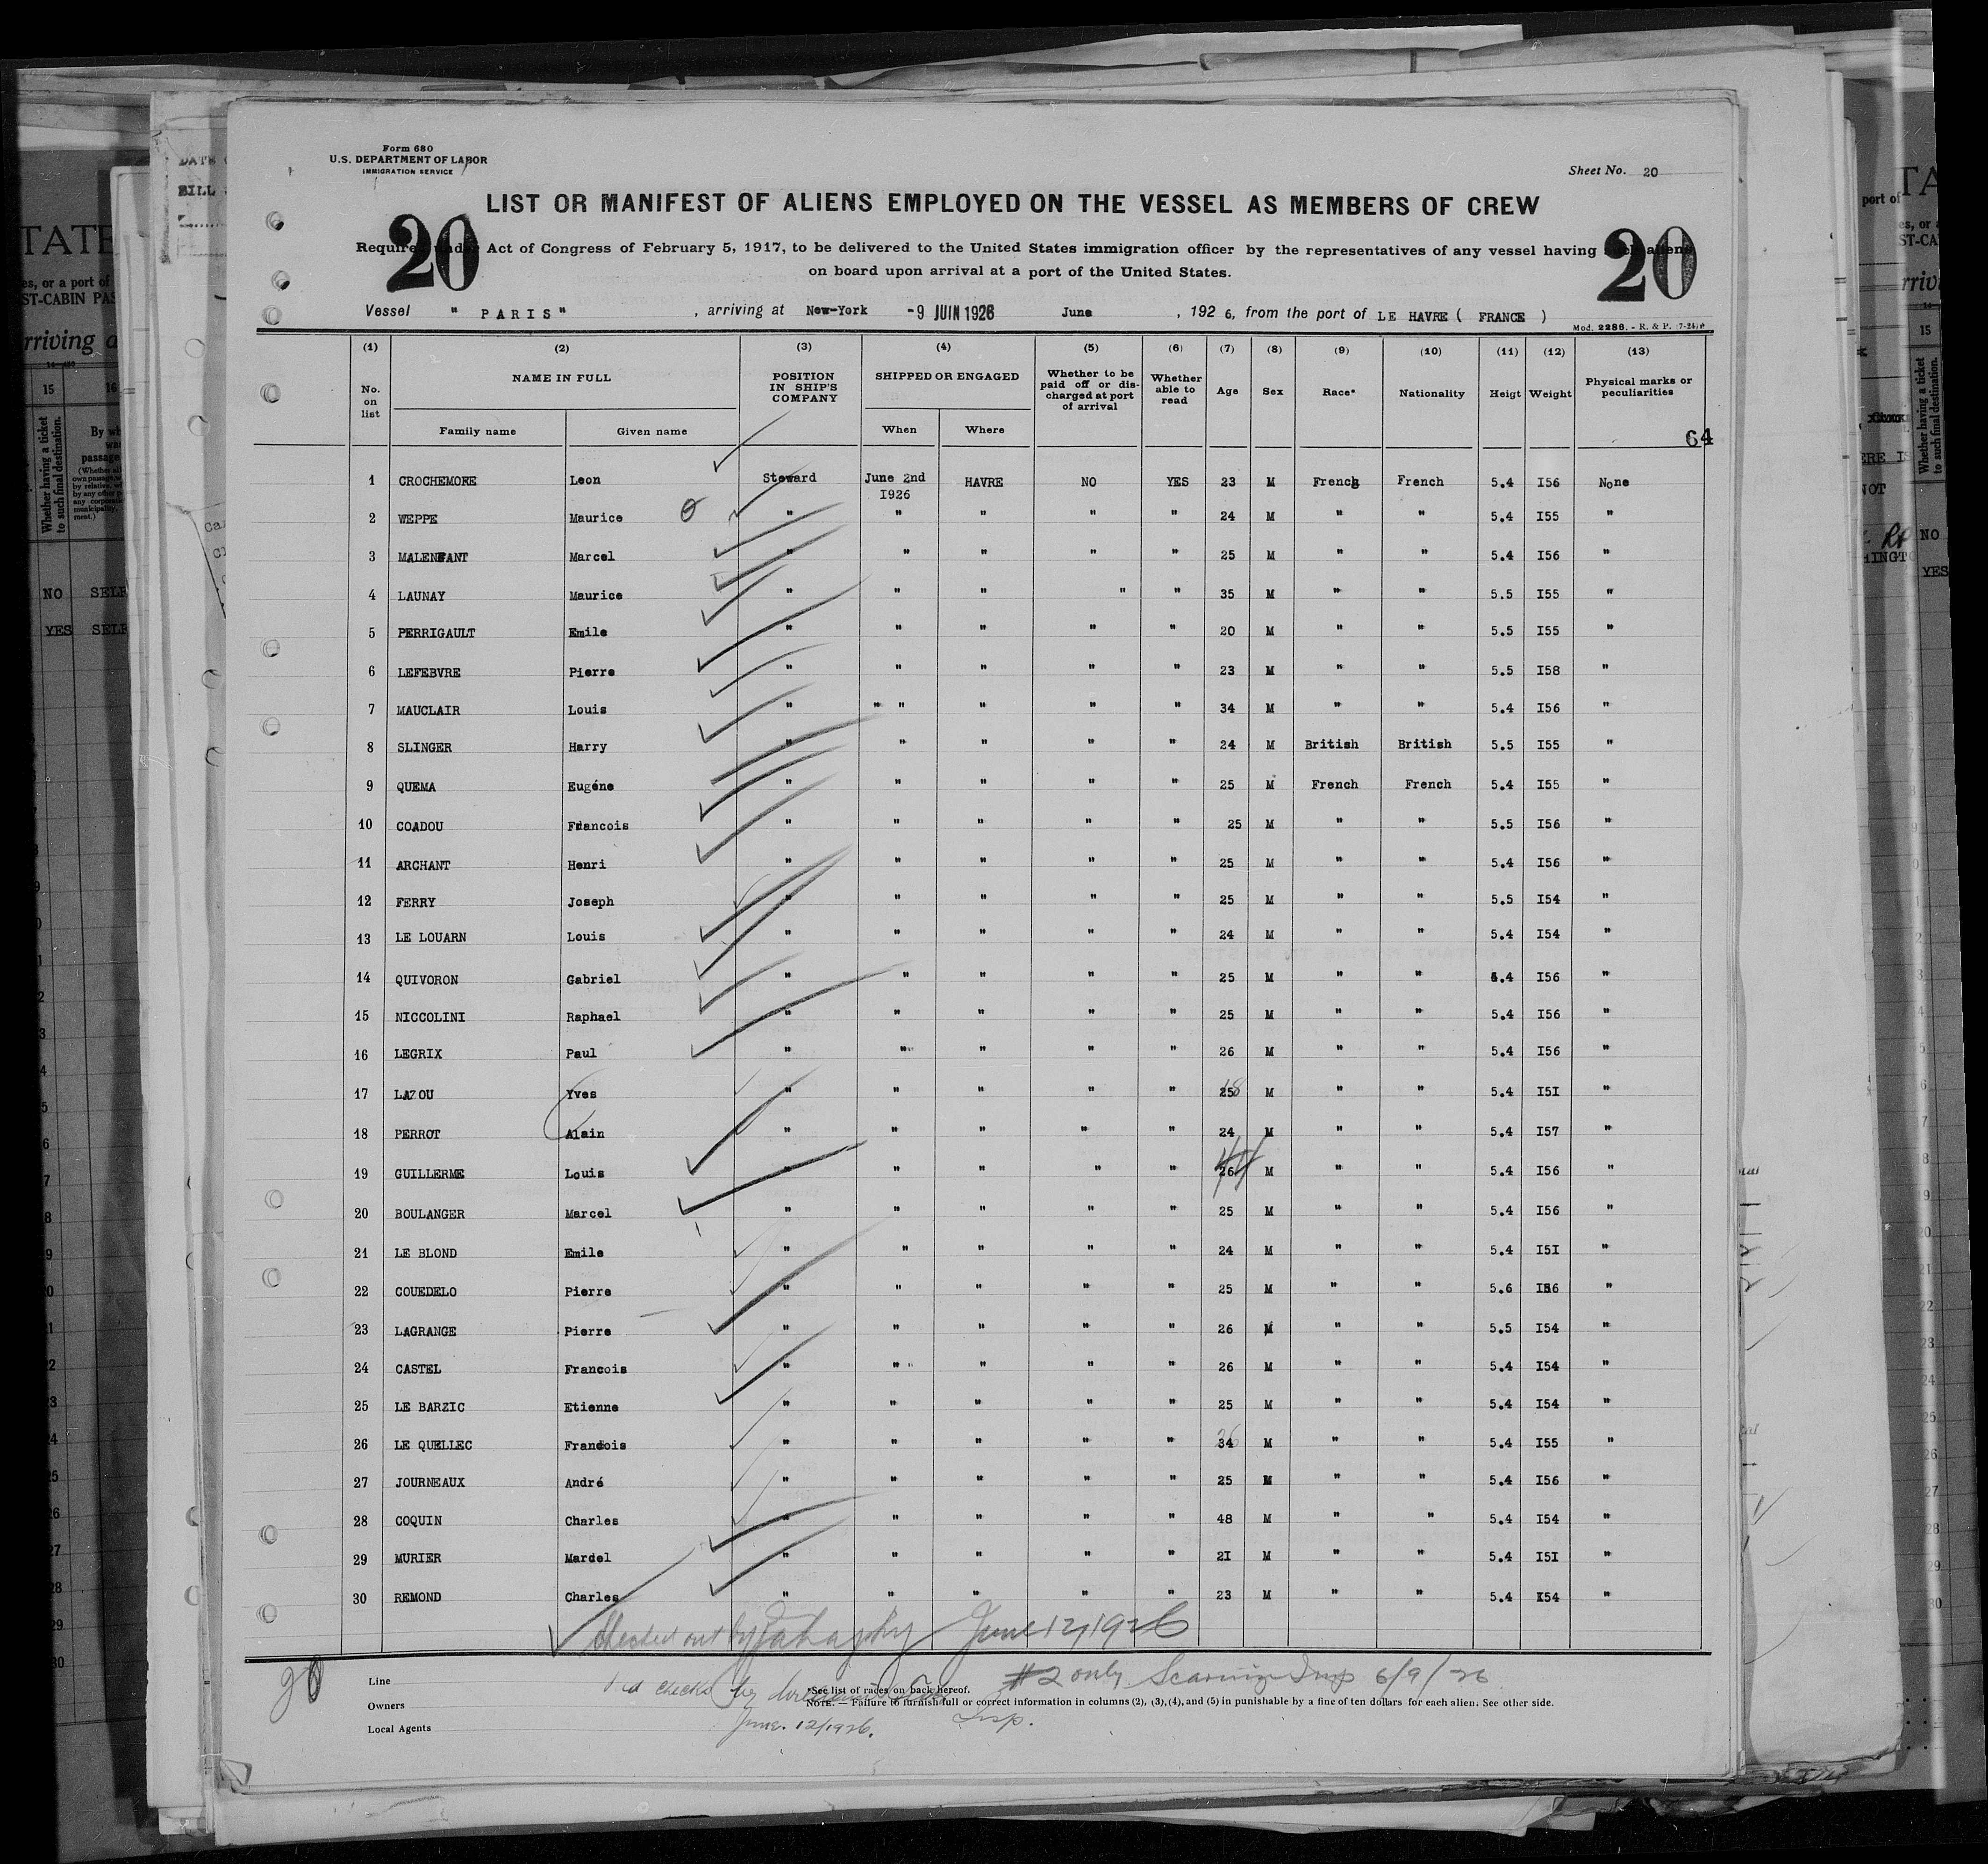 Form 680
U.S. DEPARTMENT OF LABOR
IMMIGRATION SERVICE
Sheet No. 20
LIST OR MANIFEST OF ALIENS EMPLOYED ON THE VESSEL AS MEMBERS OF CREW
20
20
Required under Act of Congress of February 5, 1917, to be delivered to the United States immigration officer by the representatives of any vessel having such aliens
on board upon arrival at a port of the United States.
Vessel " PARIS" , arriving at New-York -9 JUIN 1926 June , 192 6, from the port of LE HAVRE ( FRANCE )
Mod. 2286. - R. & P. 7-24
(1) (2) (3) (4) (5) (6) (7) (8) (9) (10) (11) (12) (13)
No. on list NAME IN FULL Family name Given name POSITION IN SHIP'S COMPANY SHIPPED OR ENGAGED When Where Whether to be paid off or dis-charged at port of arrival Whether able to read Age Sex Race* Nationality Heigt Weight Physical marks or peculiarities
64
1 CROCHEMORE Leon Steward June 2nd 1926 HAVRE NO YES 23 M French French 5.4 I56 None
2 WEPPE Maurice " " " " " 24 M " " 5.4 I55 "
3 MALENFANT Marcel " " " " " 25 M " " 5.4 I56 "
4 LAUNAY Maurice " " " " " 35 M " " 5.5 I55 "
5 PERRIGAULT Emile " " " " " 20 M " " 5.5 I55 "
6 LEFEBVRE Pierre " " " " " 23 M " " 5.5 I58 "
7 MAUCLAIR Louis " " " " " " 34 M " " 5.4 I56 "
8 SLINGER Harry " " " " " 24 M British British 5.5 I55 "
9 QUEMA Eugéne " " " " " 25 M French French 5.4 I55 "
10 COADOU Francois " " " " " 25 M " " 5.5 I56 "
11 ARCHANT Henri " " " " " 25 M " " 5.4 I56 "
12 FERRY Joseph " " " " " 25 M " " 5.5 I54 "
13 LE LOUARN Louis " " " " " 24 M " " 5.4 I54 "
14 QUIVORON Gabriel " " " " " 25 M " " 5.4 I56 "
15 NICCOLINI Raphael " " " " " 25 M " " 5.4 I56 "
16 LEGRIX Paul " " " " " 26 M " " 5.4 I56 "
17 LAZOU Yves " " " " " 25 18 M " " 5.4 I5I "
18 PERROT Alain " " " " " 24 M " " 5.4 I57 "
19 GUILLERME Louis " " " " " 26 44 M " " 5.4 I56 "
20 BOULANGER Marcel " " " " " 25 M " " 5.4 I56 "
21 LE BLOND Emile " " " " " 24 M " " 5.4 I5I "
22 COUEDELO Pierre " " " " " 25 M " " 5.6 I56 "
23 LAGRANGE Pierre " " " " " 26 M " " 5.5 I54 "
24 CASTEL Francois " " " " " " 26 M " " 5.4 I54 "
25 LE BARZIC Etienne " " " " " 25 M " " 5.4 I54 "
26 LE QUELLEC Francois " " " " " 34 26 M " " 5.4 I55 "
27 JOURNEAUX André " " " " " 25 M " " 5.4 I56 "
28 COQUIN Charles " " " " " 48 M " " 5.4 I54 "
29 MURIER Mardel " " " " " 2I M " " 5.4 I5I "
30 REMOND Charles " " " " " 23 M " " 5.4 I54 "
Checked out by June 12/1926
20
Line
#2 only Insp 6/9/26
checked by
Owners
Local Agents
*See list of races on back hereof.
NOTE. — Failure to furnish full or correct information in columns (2), (3), (4), and (5) in punishable by a fine of ten dollars for each alien. See other side.
June. 12/1926. Insp.